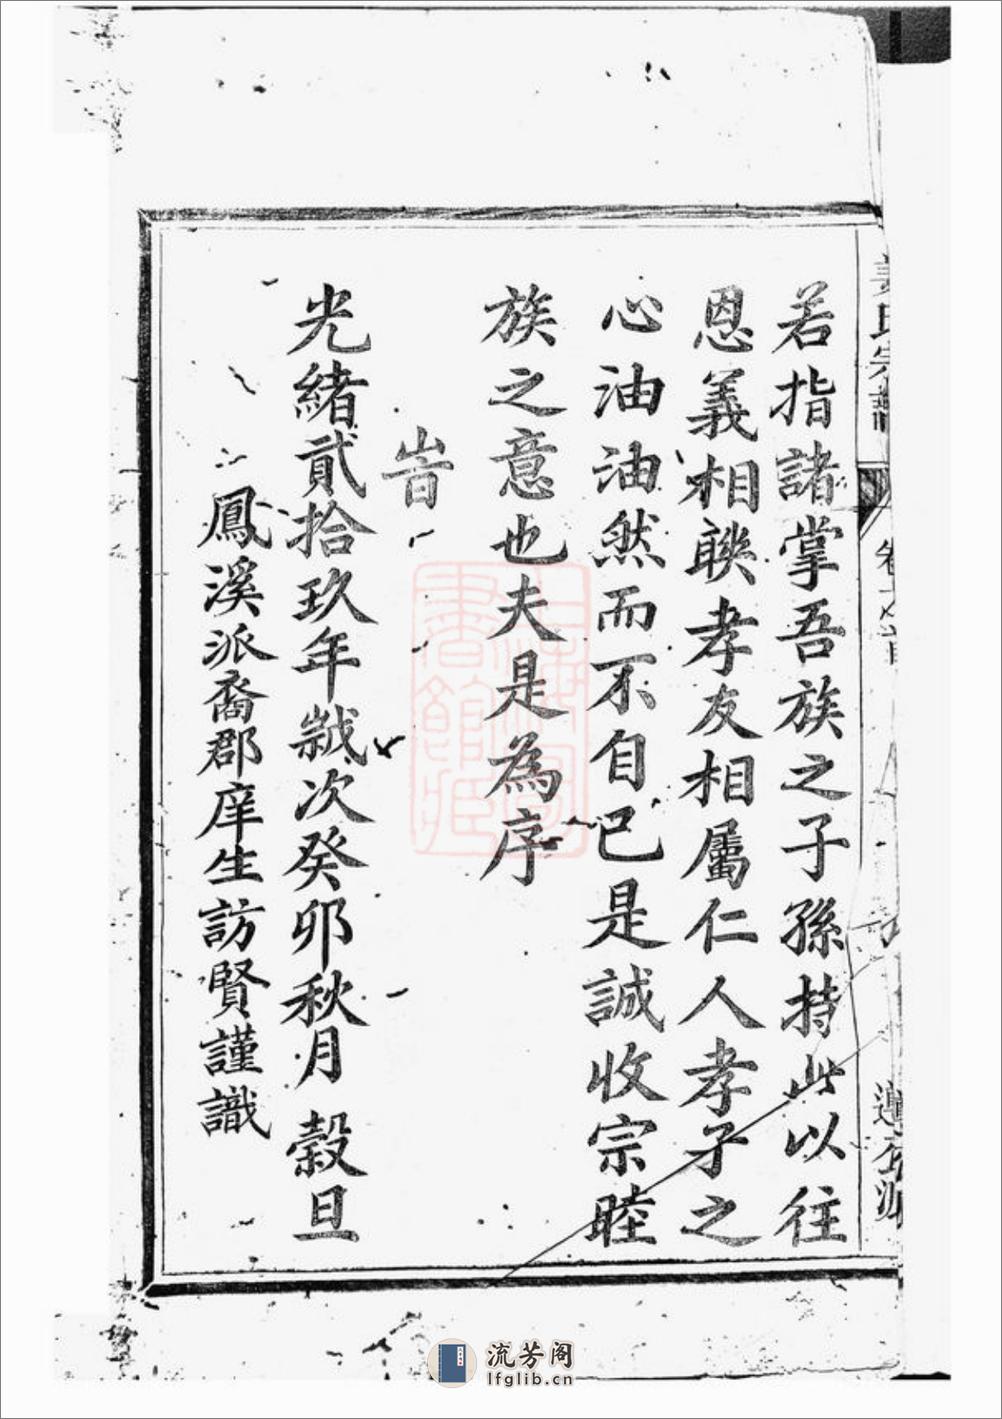 姜氏宗譜
若指諸掌吾族之子孫持此以往
恩義相聮孝友相屬仁人孝子之
心油油然而不自已是誠收宗睦
族之意也夫是為序
旹
光緒貳拾玖年歲次癸卯秋月 穀旦
鳳溪派裔郡庠生訪賢謹識
上海圖書館藏
流芳阁
lfglib.cn